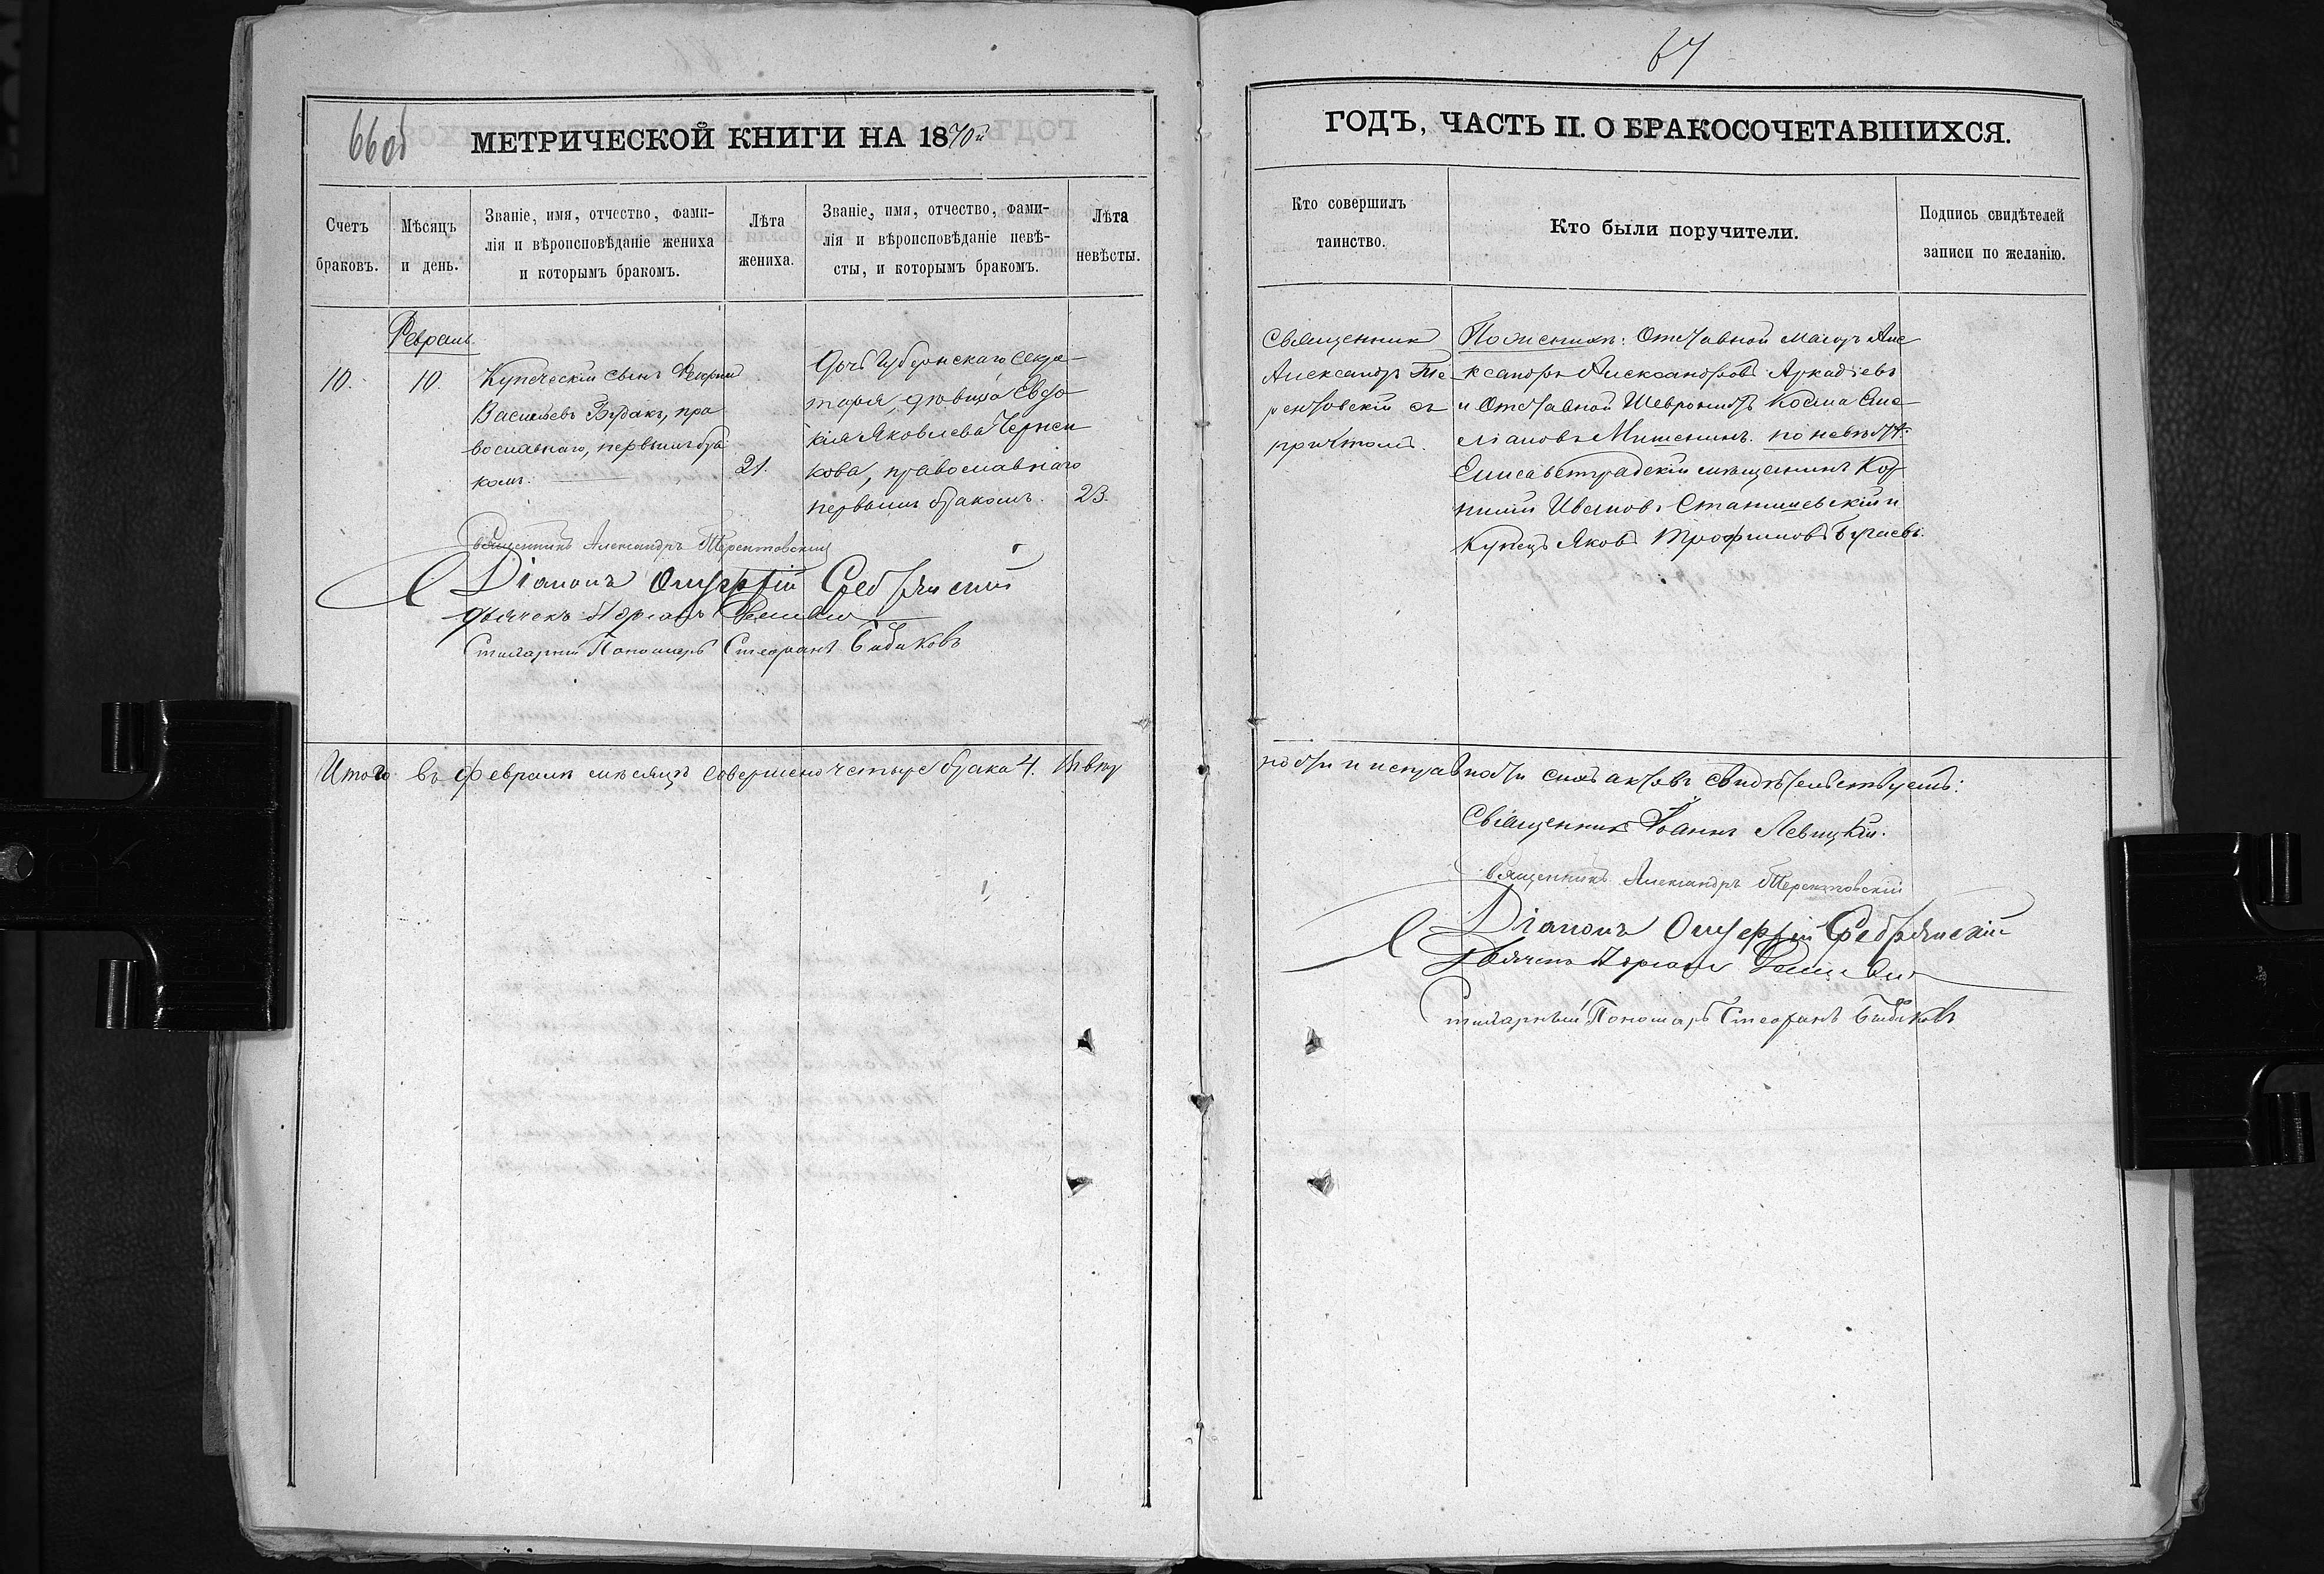 66об
МЕТРИЧЕСКОЙ КНИГИ НА 1870й
Счетъ браковъ.
Мѣсяцъ и день.
Званіе, имя, отчество, фами-
лія и вѣроисповѣданіе жениха
и которымъ бракомъ.
Лѣта жениха.
Званіе, имя, отчество, фами-
лія и вѣроисповѣданіе невѣ-
сты, и которымъ бракомъ.
Лѣта невѣсты.
Февраль.
10.
10.
Купеческій сынъ
Васильевъ Будакъ, пра
вославнаго, первымъ бра
комъ.
21.
Дочь Губернскаго Секре-
таря, дѣвица Евдо-
кія Яковлева Черни
кова, православнаго
первымъ бракомъ.
23.
Священникъ Александръ Терентовскій
Діаконъ Онуфрій
Дьячекъ
Пономарь Стефанъ Бибиковъ
Итого въ февралѣ мѣсяцѣ совершено четыре брака 4. Въ вѣр
67
ГОДЪ, ЧАСТЬ II. О БРАКОСОЧЕТАВШИХСЯ.
Кто совершилъ
таинство.
Кто были поручители.
Подпись свидѣтелей
записи по желанію.
Священникъ
Александръ Те
рентовскій съ
причтомъ.
По женихѣ: Отставной Маіоръ Але
ксандръ Александровъ Аркадіевъ
и Отставной Козма Еме
ліановъ Мишенинъ. по невѣстѣ:
Елисаветградскій мѣщанинъ Кор
нилій Ивановъ Станишевскій и
Купецъ Яковъ Трофимовъ Бугаевъ.
ности и исправности сихъ актовъ свидѣтельствуемъ:
Священникъ Іоаннъ Левицкій.
Священникъ Александръ Терентовскій
Діаконъ Онуфрій
Дьячекъ
Пономарь Стефанъ Бибиковъ